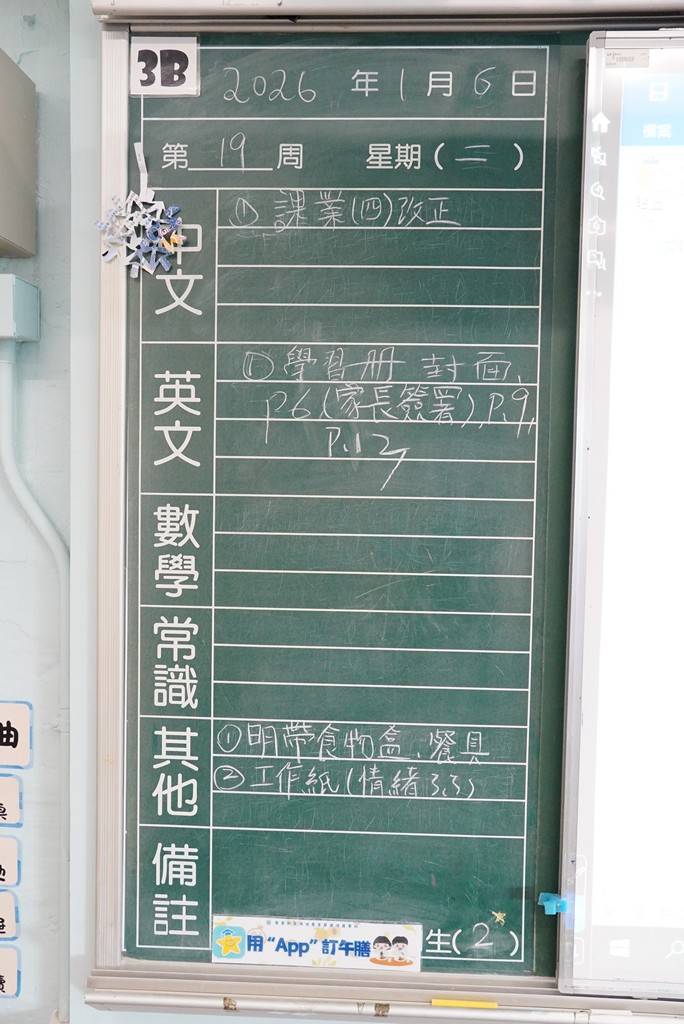 3B
2026 年 1 月 6 日
第 19 周 星期(二)
中文
① 課業(四)改正
英文
① 學習冊 封面、
P.6(家長簽署)、P.9、
P.12
數學
常識
其他
① 明帶食物盒、餐具
② 工作紙(情緒3.3)
備註
用“App”訂午膳
生(2)
檔案